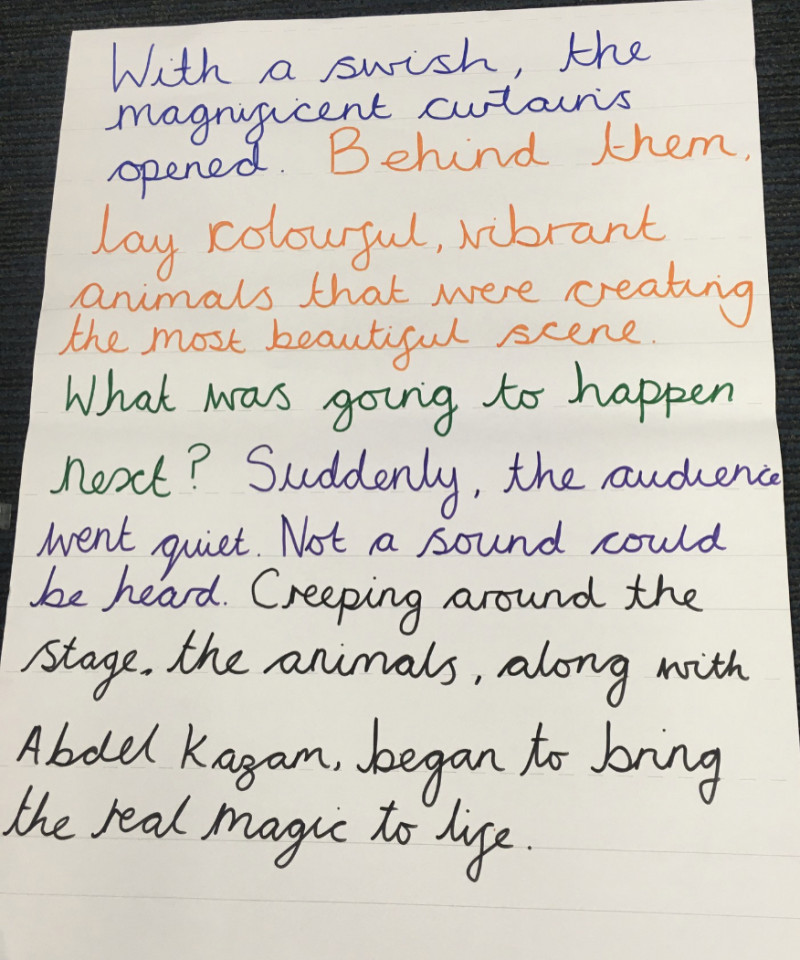 With a swish, the
magnificent curtains
opened. Behind them,
lay colourful, vibrant
animals that were creating
the most beautiful scene.
What was going to happen
next? Suddenly, the audience
went quiet. Not a sound could
be heard. Creeping around the
stage, the animals, along with
Abdel Kazam, began to bring
the real magic to life.